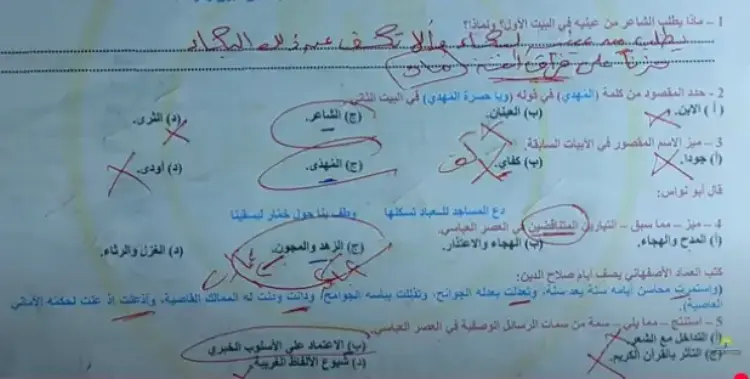 1 – ماذا يطلب الشاعر من عينيه في البيت الأول؟ ولماذا؟
يطلب من عينيه البكاء وألا تكف عن ذلك البكاء
حزنا على فراق ابنه
2 - حدد المقصود من كلمة (المُهدي) في قوله (ويا حسرة المُهدي) في البيت الثاني.
(أ) الابن. (ب) العينان. (ج) الشاعر. (د) الثرى.
3 – ميز الاسم المقصور في الأبيات السابقة.
(أ) جودا. (ب) كفاي. (ج) المُهدى. (د) أودى.
قال أبو نواس:
دع المساجد للعباد تسكنها وطف بنا حول خمّار ليسقينا
4 – ميز – مما سبق – التيارين المتناقضين في العصر العباسي.
(أ) المدح والهجاء. (ب) الهجاء والاعتذار. (ج) الزهد والمجون. (د) الغزل والرثاء.
كتب العماد الأصفهاني يصف أيام صلاح الدين:
(واستمرت محاسن أيامه سنة بعد سنة، وتعدلت بعدله الجوانح، وتذللت ببأسه الجوامح/ ودانت ودنت له الممالك القاصية، وأذعنت إذ عنت لحكمه الأماني
العاصية).
5 – استنتج – مما يلي – سمة من سمات الرسائل الوصفية في العصر العباسي.
(أ) التداخل مع الشعر. (ب) الاعتماد على الأسلوب الخبري
(ج) التأثر بالقرآن الكريم. (د) شيوع الألفاظ الغريبة.